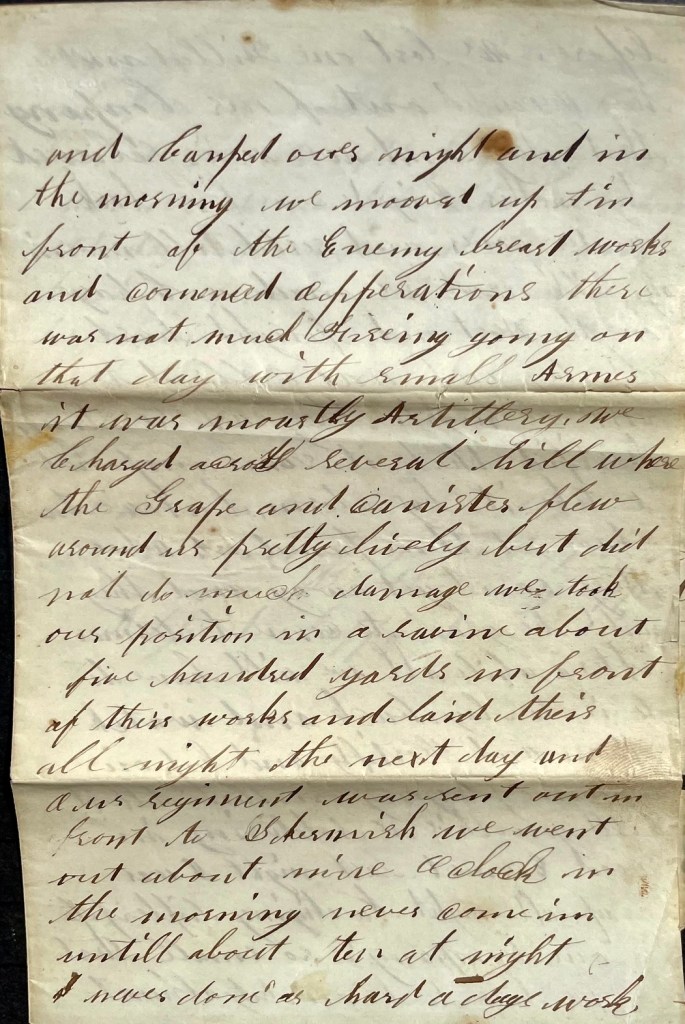 and Camped over night and in
the morning we mooved up tin
front of the Enemy breast works
and comenced apperations there
was not much Fireing going on
that day with small Armes
it was moastly Artillery. we
Charged across several hill where
the Grape and canister flew
around us pretty lively but did
not do much damage we took
our position in a ravine about
five hundred yards in front
of their works and laid their
all night the next day and
our regiment was sent out in
front to Skermish we went
out about nine Oclock in
the morning never come in
untill about ten at night
I never done as hard a days work